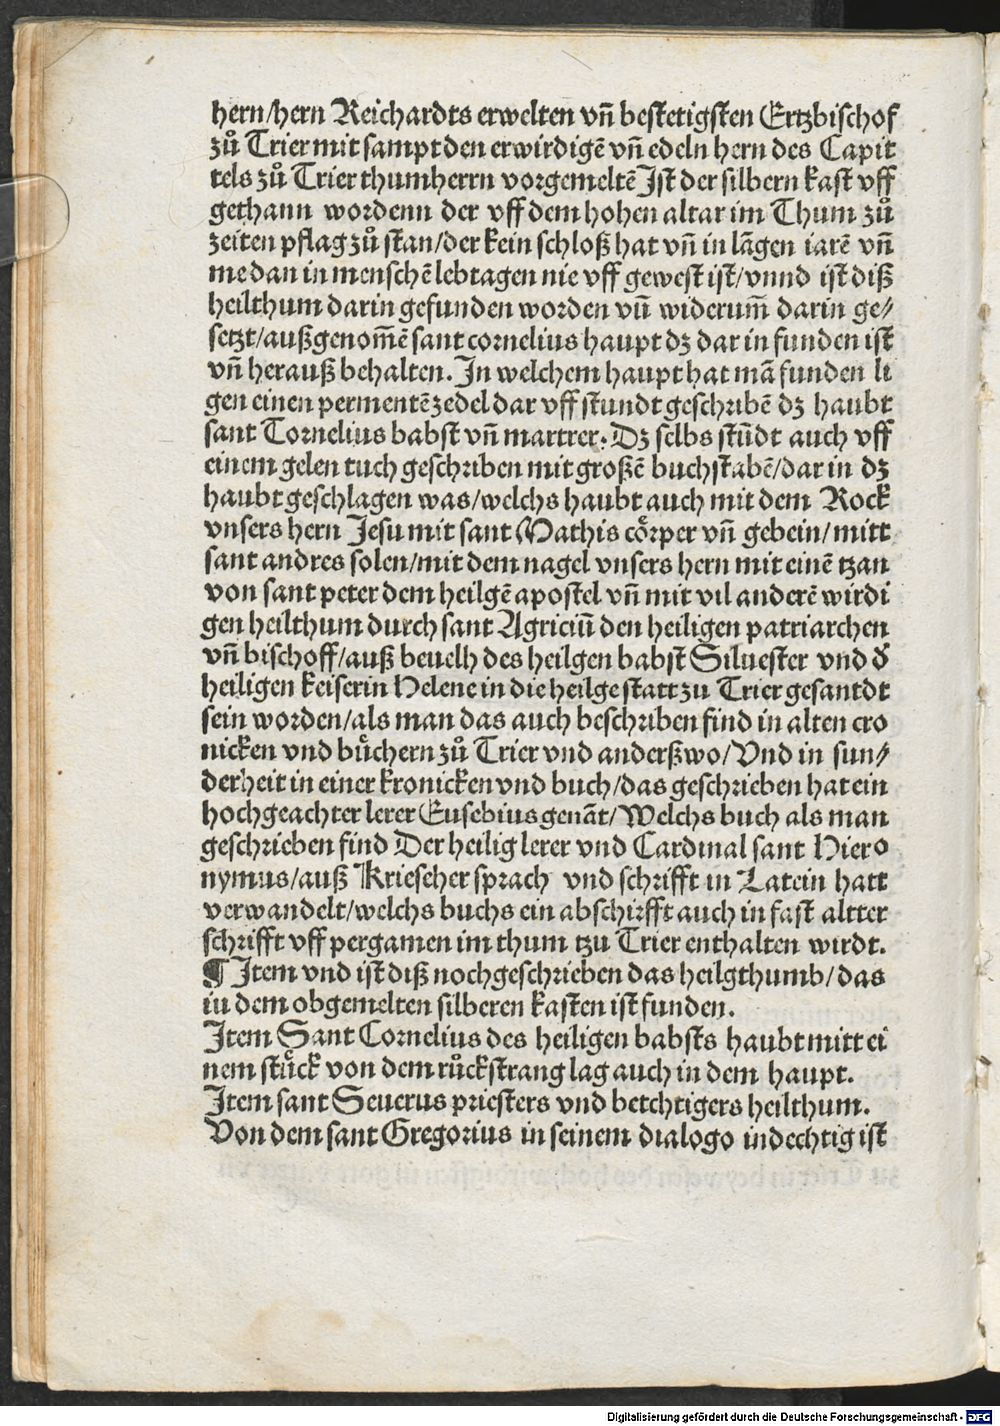 hern/hern Reichardts erwelten vñ bestetigsten Ertzbischof
zů Trier mit sampt den erwirdigē vñ edeln hern des Capit
tels zů Trier thumherrn vorgemeltē Ist der silbern kast vff
gethann wordenn der vff dem hohen altar im Thum zů
zeiten pflag zů stan/der kein schloß hat vñ in lāgen iarē vñ
me dan in menschē lebtagen nie vff gewest ist/vnnd ist diß
heilthum darin gefunden worden vñ widerum̄ darin ge⸗
setzt/außgenom̄ē sant cornelius haupt dz dar in funden ist
vñ herauß behalten. In welchem haupt hat mā funden li
gen einen permentē zedel dar vff stundt geschribē dz haubt
sant Cornelius babst vñ martrer. Dz selbs stūdt auch vff
einem gelen tuch geschriben mit großē buchstabē/dar in dz
haubt geschlagen was/welchs haubt auch mit dem Rock
vnsers hern Jesu mit sant Mathis cörper vñ gebein/mitt
sant andres solen/mit dem nagel vnsers hern mit einē tzan
von sant peter dem heilgē apostel vñ mit vil anderē wirdi
gen heilthum durch sant Agriciū den heiligen patriarchen
vñ bischoff/auß beuelh des heilgen babst Siluester vnd d̄
heiligen keiserin Helene in die heilge statt zu Trier gesantdt
sein worden/als man das auch beschriben find in alten cro
nicken vnd büchern zů Trier vnd anderßwo/Vnd in sun⸗
derheit in einer kronicken vnd buch/das geschrieben hat ein
hochgeachter lerer Eusebius genāt/Welchs buch als man
geschrieben find Der heilig lerer vnd Cardinal sant Hiero
nymus/auß Kriescher sprach vnd schrifft in Latein hatt
verwandelt/welchs buchs ein abschirfft auch in fast altter
schrifft vff pergamen im thum tzu Trier enthalten wirdt.
¶ Item vnd ist diß nochgeschrieben das heilgthumb/das
iu dem obgemelten silberen kasten ist funden.
Item Sant Cornelius des heiligen babsts haubt mitt ei
nem stück von dem rückstrang lag auch in dem haupt.
Item sant Seuerus priesters vnd betchtigers heilthum.
Von dem sant Gregorius in seinem dialogo indechtig ist
Digitalisierung gefördert durch die Deutsche Forschungsgemeinschaft - DFG